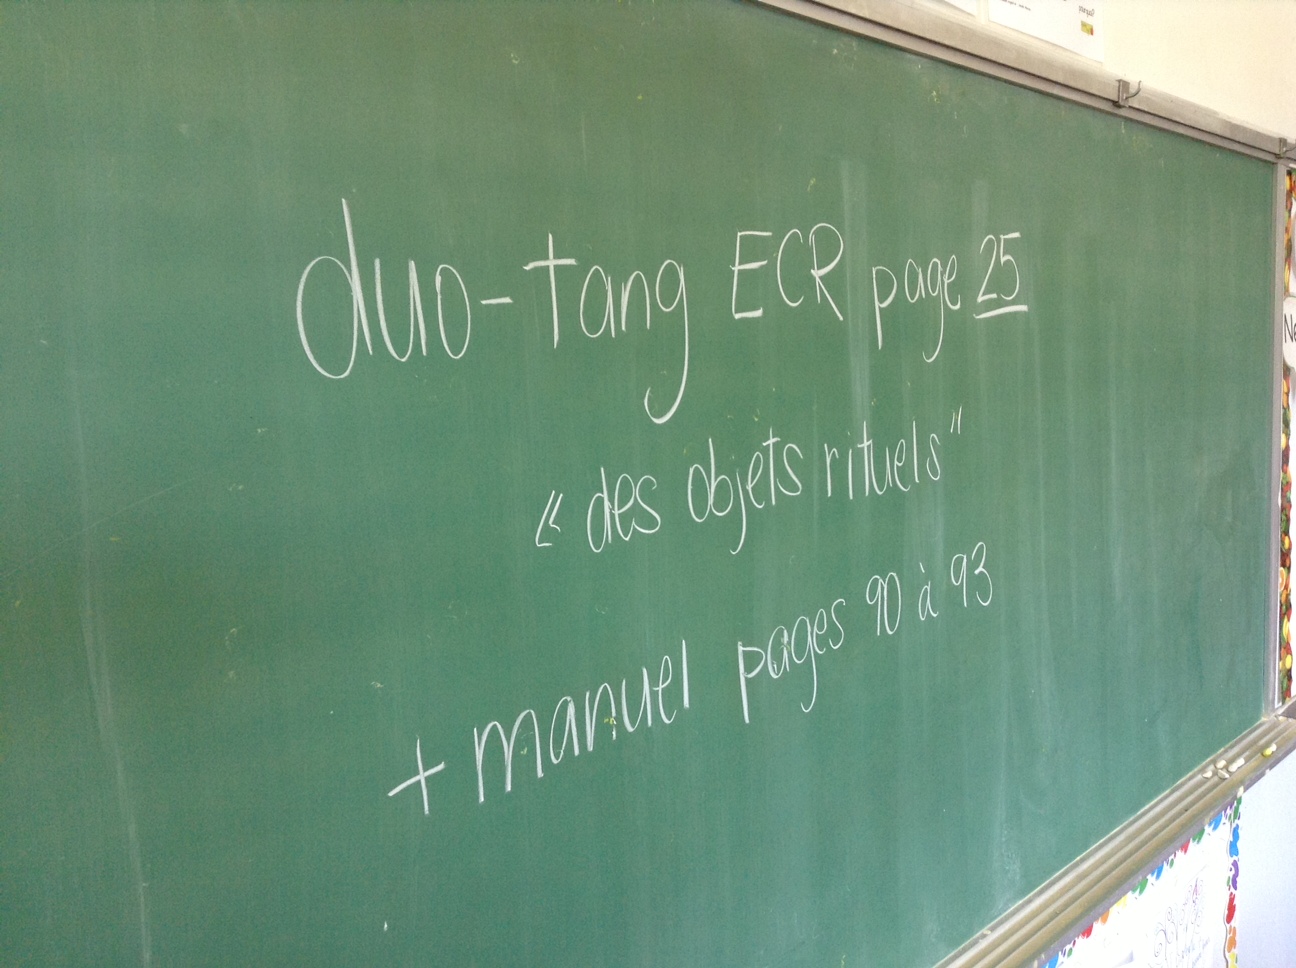 duo-tang ECR page 25
« des objets rituels"
+ manuel pages 90 à 93
Ne